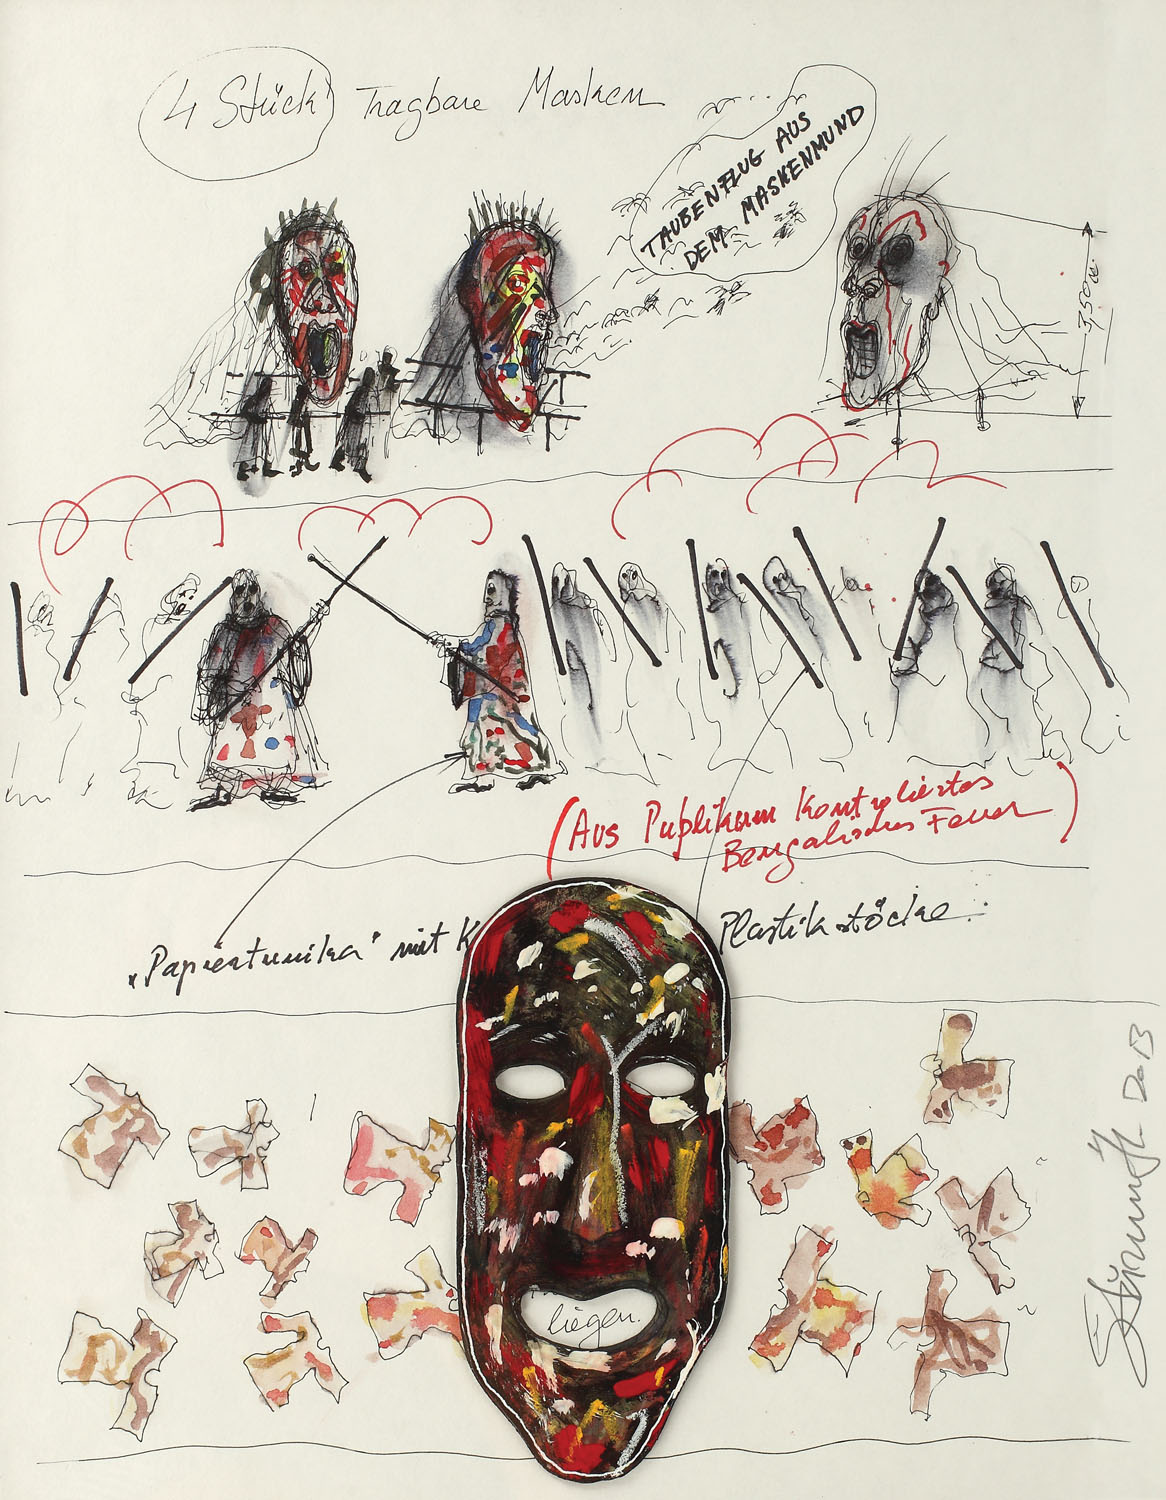 4 Stück Tragbare Masken
TAUBENFLUG AUS
DEM MASKENMUND
3,50 m.
(Aus Puplikum Kontroliertes
Bengalisches Feuer)
„Papiertunika" mit K
Plastikstöcke
liegen.
2013